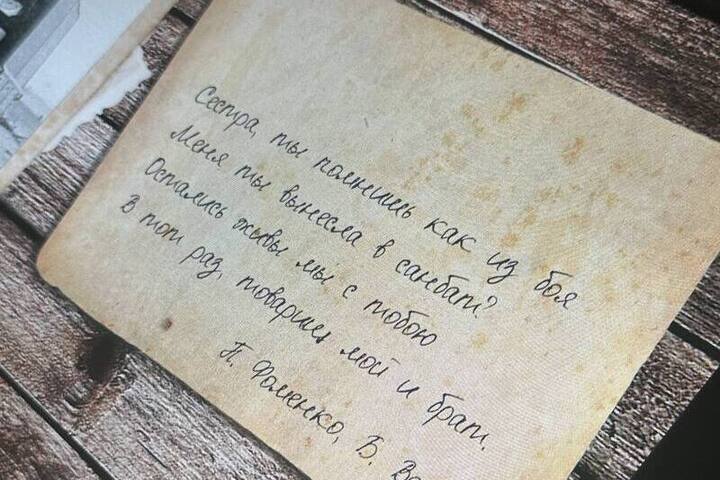 Сестра, ты помнишь как из боя
Меня ты вынесла в санбат?
Остались живы мы с тобою
В тот раз, товарищ мой и брат.
П. Фоменко, Б.